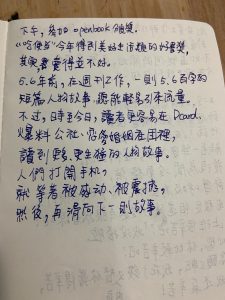 下午,參加 openbook 頒獎。
“吃便當”今年得到美好生活類的好書獎,
其實書賣得並不好。
5.6年前,在週刊工作,一則 5.6百字的
短篇人物故事,還能輕易引來流量。
不過,時至今日,讀者更容易在 Dcard.
爆料公社、協尋姻姻在田裡,
讀到更多、更生猛的人物故事。
人們打開手機,
就等著被感動、被震撼,
然後,再滑向下一則故事。